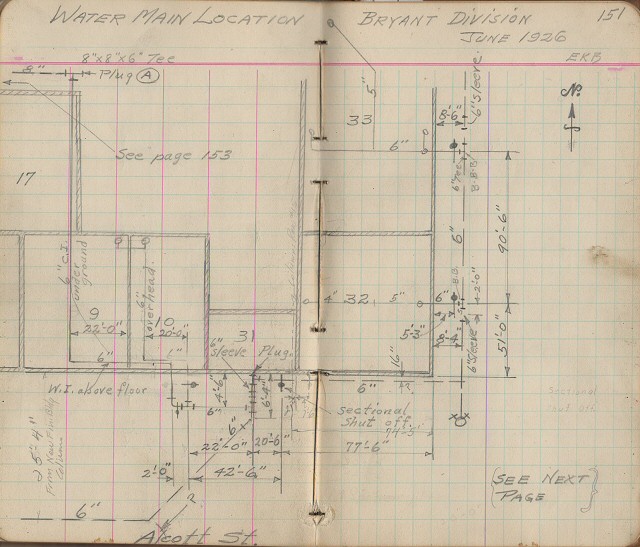 WATER MAIN LOCATION BRYANT DIVISION 151
JUNE 1926
8"x8"x6" Tee
EKB
8" Plug A
See page 153
17
33
5"
6"
8'-6"
6" Sleeve.
6" Tee
B.B.
N.
6" C.I. under ground
6" overhead.
9
22'-0"
10
20'-0"
31
4"
32
5"
6"
5'-3"
8'-4"
B.B.
2'-0"
6" Sleeve
6"
90'-6"
51'-0"
6"
1"
6" sleeve
Plug.
16"
6"
W.I. above floor
4'-6"
6'-4"
6"
6"
Sectional
Shut off.
Sectional
Shut off
22'-0"
20'-6"
77'-6"
2'-0"
42'-6"
25'-4"
6"
2.
Alcott St.
(SEE NEXT
PAGE)